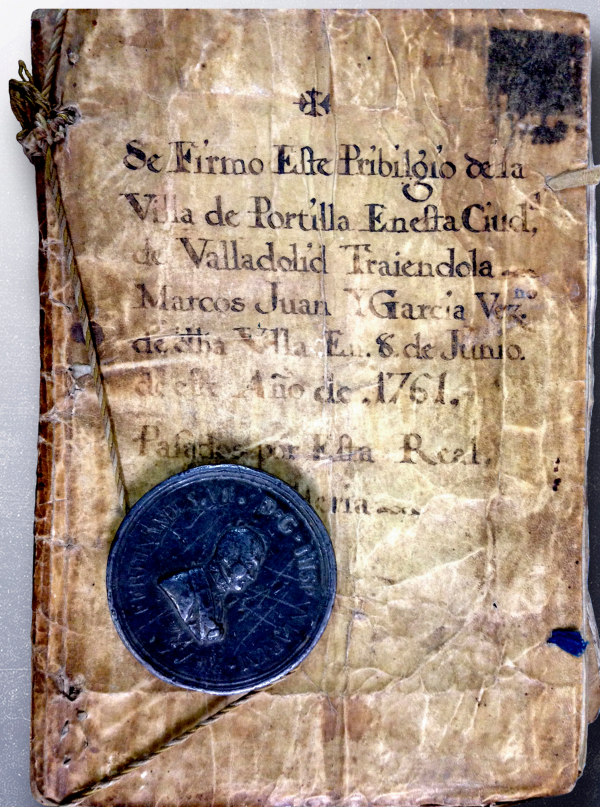 Se Firmo Este Pribilgio de la
Villa de Portilla En esta Ciud.d
de Valladolid Traiendola
Marcos Juan Y Garcia Vez.no
de dha Villa En. 8. de Junio.
de este Año de .1761.
Pasados por Esta Real.
FERDINAND. VII. D. G. HISP.